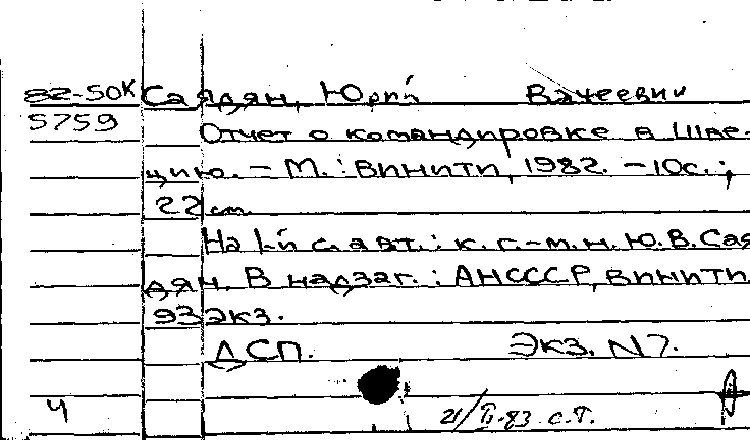 82-50К Саядян, Юрий Вачеевич
5759 Отчет о командировке в Шве-
цию. – М.: ВИНИТИ, 1982. – 10с.;
22 см
На 1-й с. авт.: к. г.-м. н. Ю.В. Сая-
дян. В надзаг.: АН СССР, ВИНИТИ
93 экз.
ДСП. Экз. N 7.
4 21/II-83 с.т.